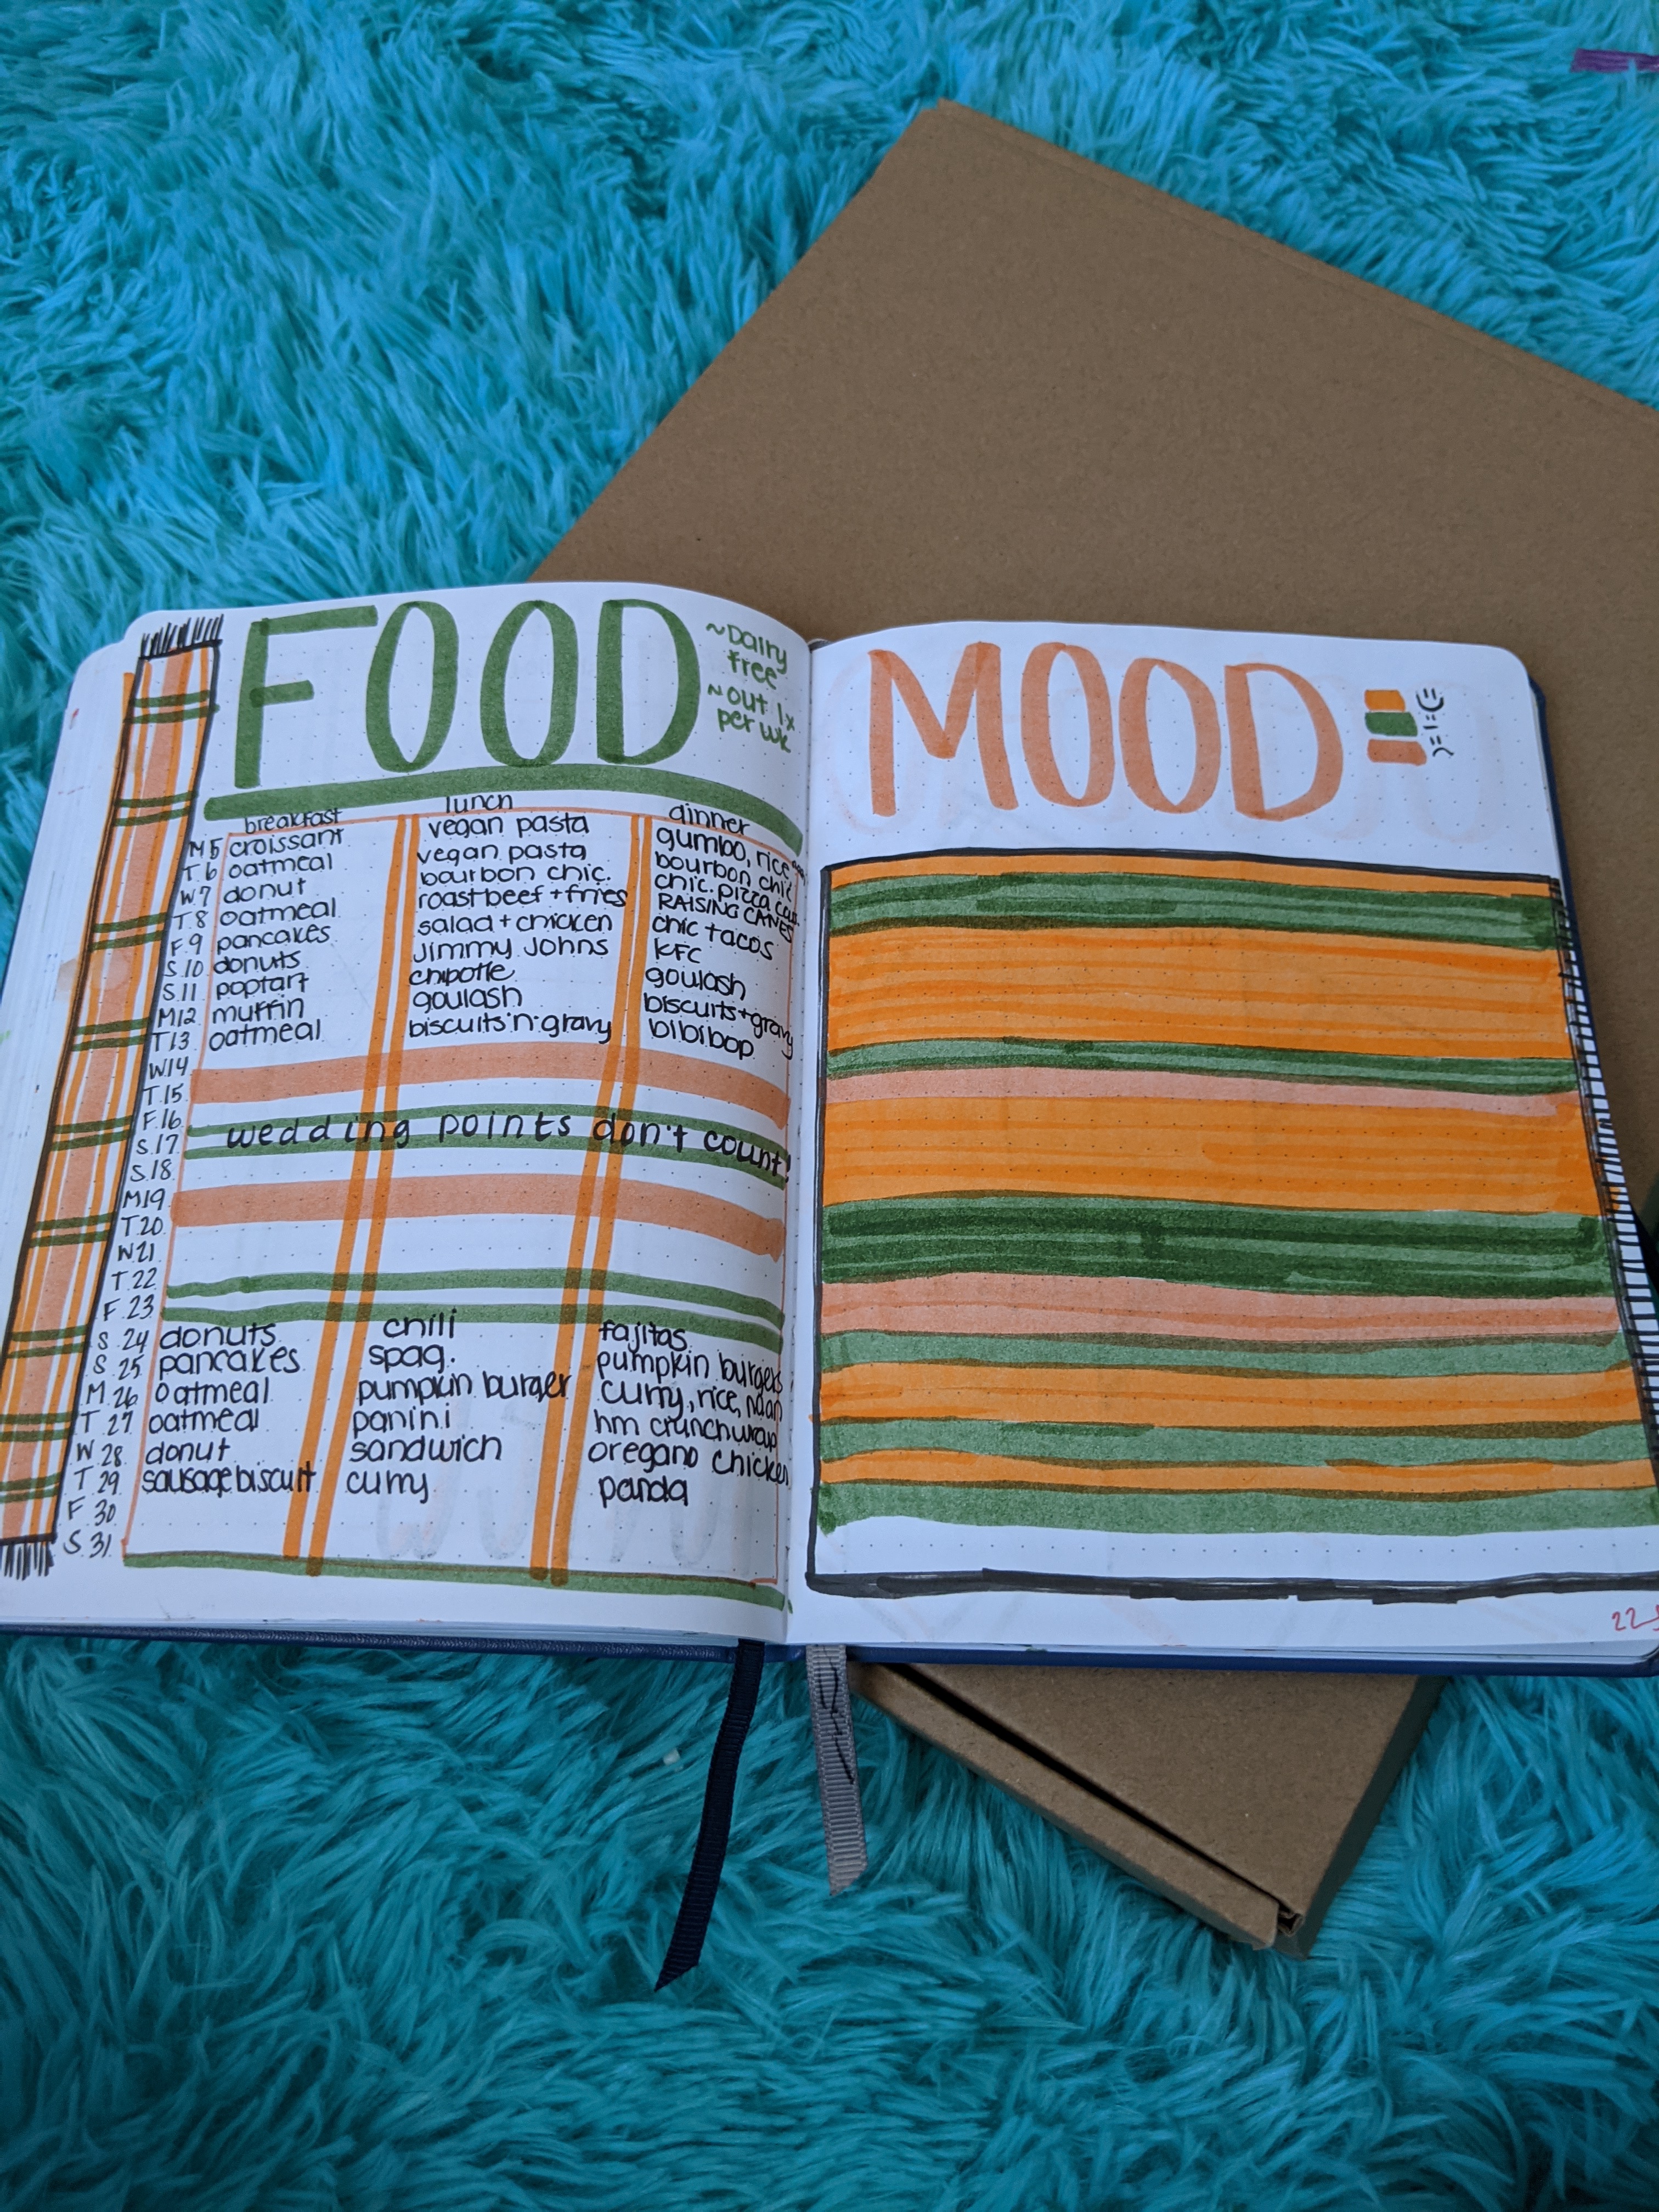 FOOD
~Dairy
free
~out 1x
per wk
breakfast lunch dinner
M 5 croissant vegan pasta gumbo, rice
T. 6 oatmeal vegan pasta bourbon chic
W. 7 donut bourbon chic. chic. pizza
T. 8 oatmeal roastbeef + fries RAISING CANES
F. 9 pancakes salad + chicken chic tacos
S. 10 donuts Jimmy Johns KFC
S. 11 poptart chipotle goulash
M12 muffin goulash biscuits + gravy
T13 oatmeal biscuits 'n' gravy bibibop
W.14
T.15
F.16
S.17 wedding points don't count!
S.18
M19
T.20
W.21
T.22
F. 23
S. 24 donuts chili fajitas
S. 25 pancakes spag. pumpkin burgers
M. 26 oatmeal pumpkin burger curry, rice, naan
T 27 oatmeal panini hm crunchwrap
W 28 donut sandwich oregano chicken
T 29 sausage biscuit curry panda
F 30
S. 31
MOOD